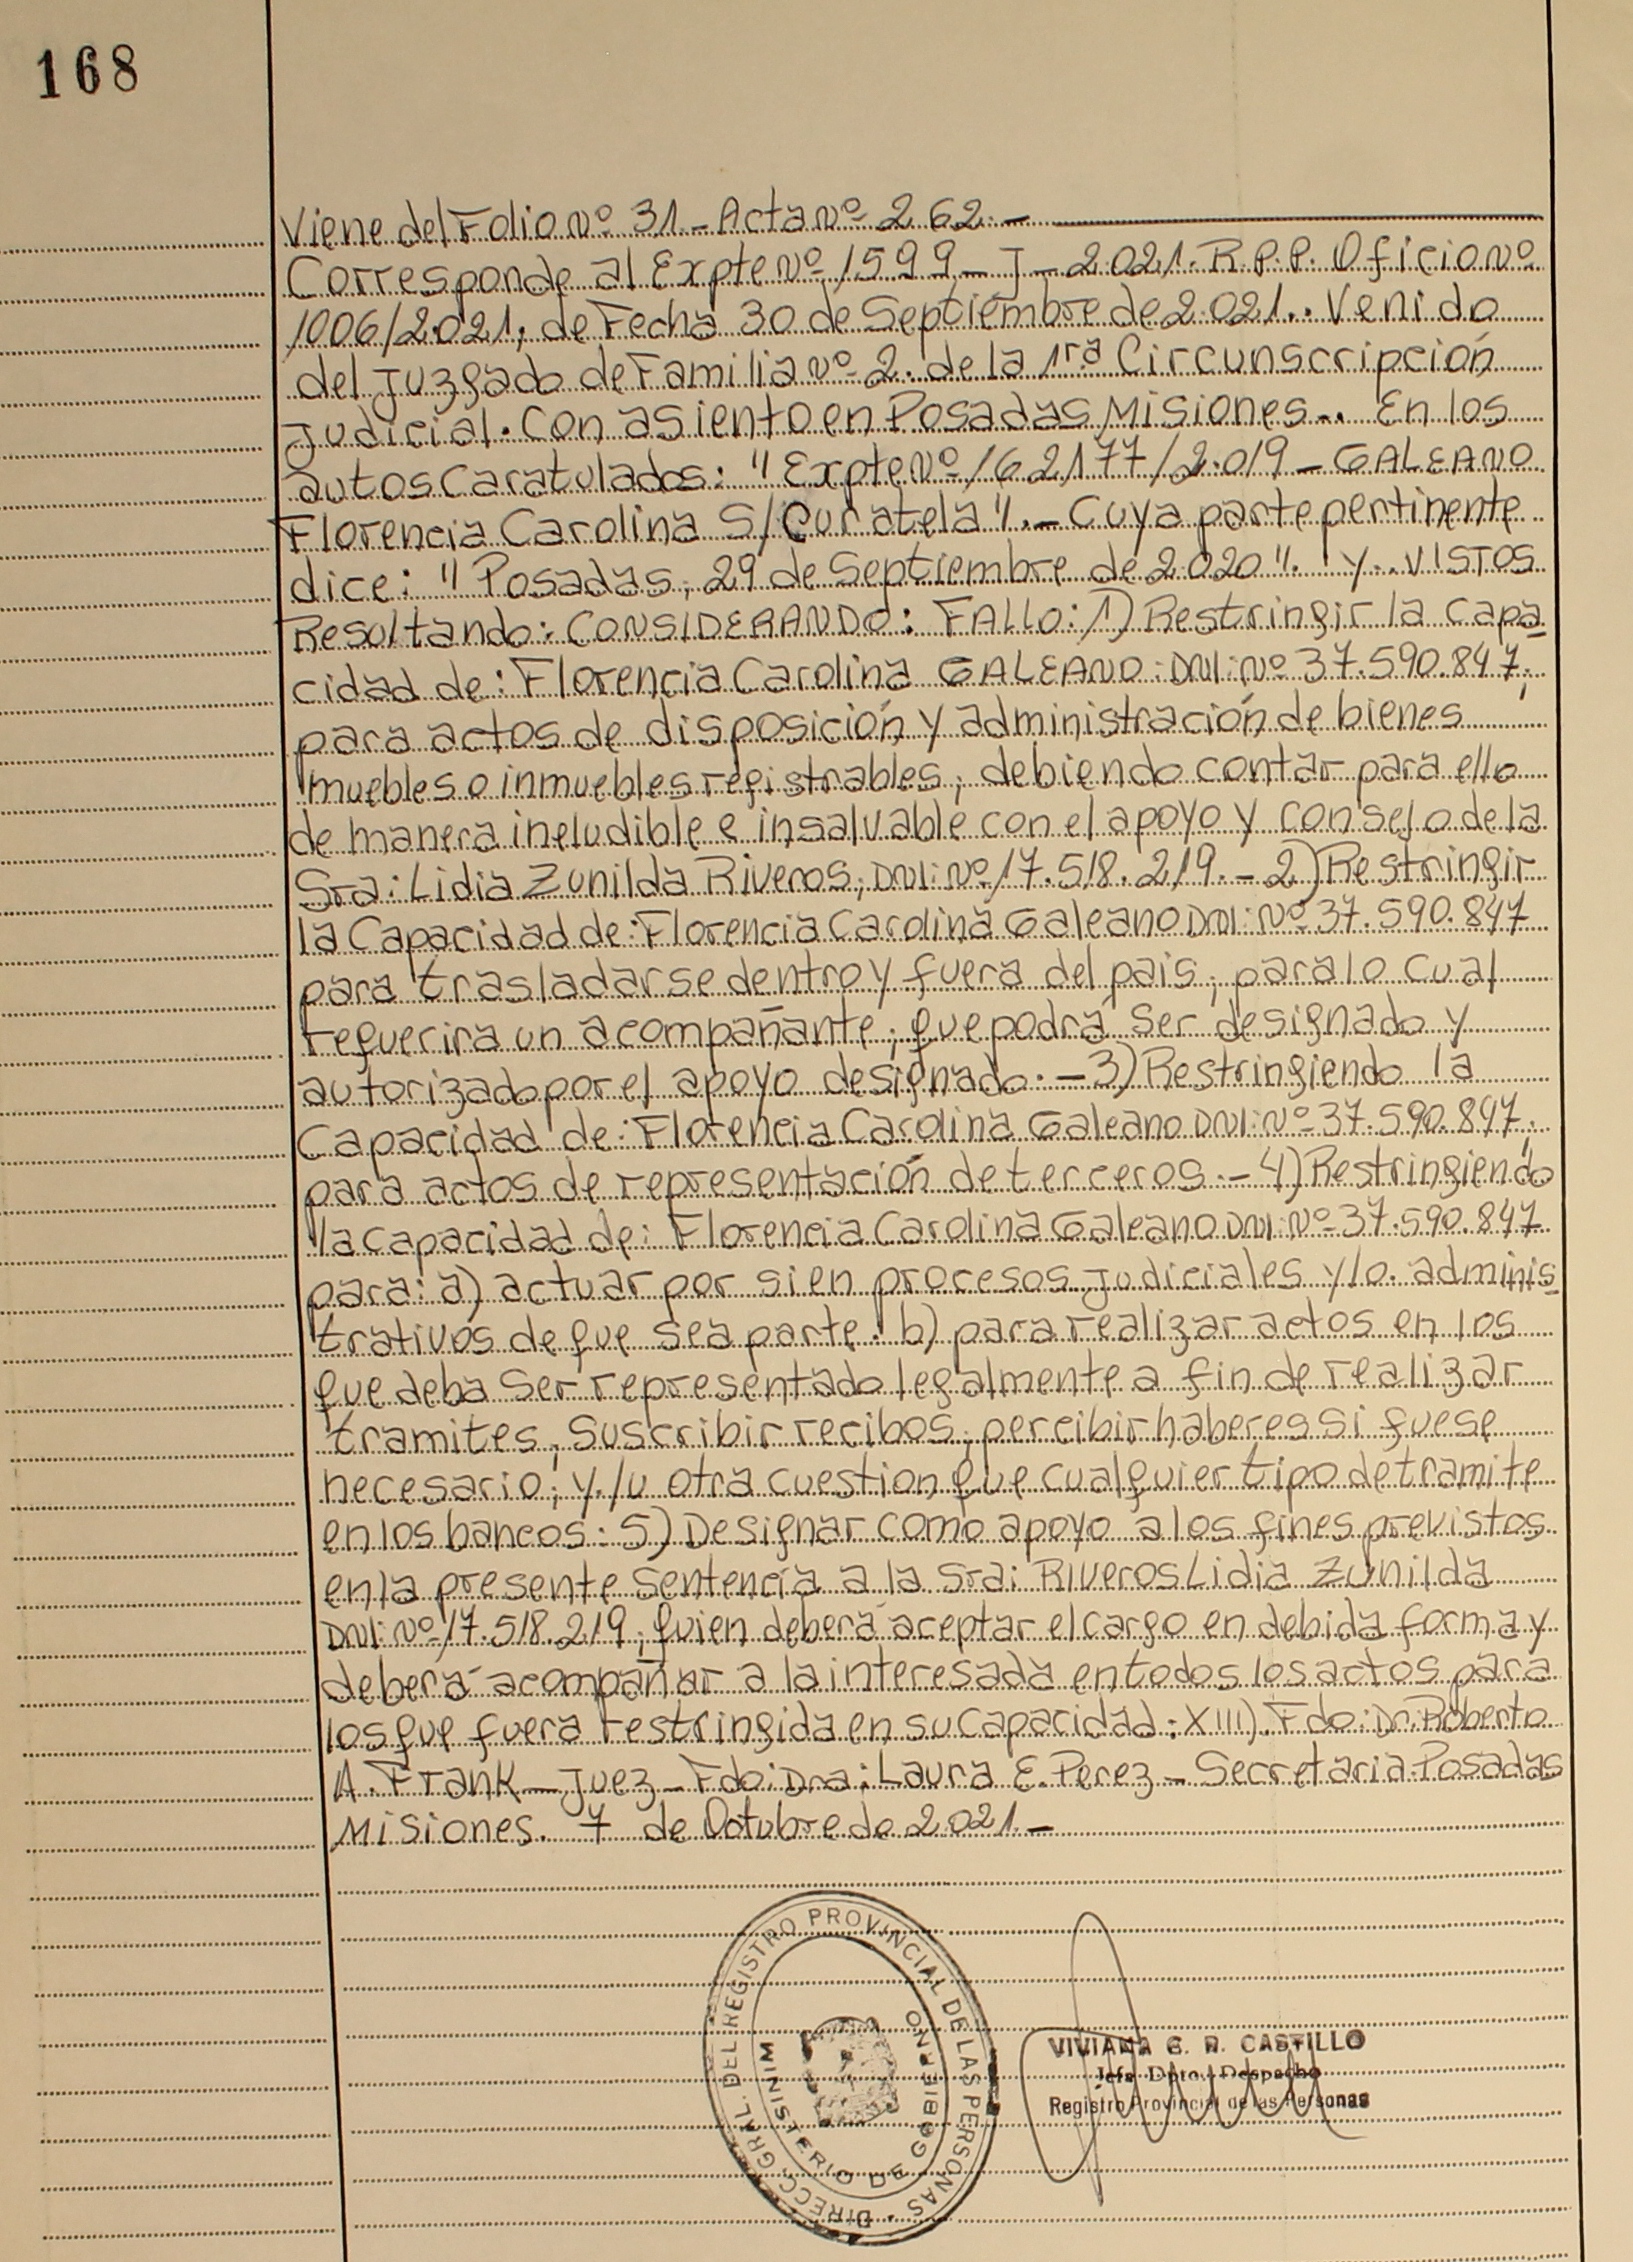 168
Viene del Folio Nº 31 - Acta Nº 262. -
Corresponde al Expte Nº 1599 - J - 2.021. R.P.P. Oficio Nº
1006/2.021, de Fecha 30 de Septiembre de 2.021.. Venido
del Juzgado de Familia Nº 2. de la 1ra Circunscripción
Judicial. Con asiento en Posadas Misiones.. En los
autos Caratulados: "Expte Nº 162177/2.019 - GALEANO
Florencia Carolina S/ Curatela". - Cuya parte pertinente
dice: "Posadas, 29 de Septiembre de 2.020". Y.. VISTOS
Resultando: CONSIDERANDO: FALLO: 1) Restringir la Capa
cidad de: Florencia Carolina GALEANO: DNI: Nº 37.590.847,
para actos de disposición y administración de bienes
muebles o inmuebles registrables, debiendo contar para ello
de manera ineludible e insalvable con el apoyo y consejo de la
Sra: Lidia Zunilda Riveros, DNI: Nº 17.518.219. - 2) Restringir
la Capacidad de: Florencia Carolina Galeano DNI: Nº 37.590.847
para trasladarse dentro y fuera del pais, para lo cual
requerira un acompañante, que podrá ser designado y
autorizado por el apoyo designado. - 3) Restringiendo la
Capacidad de: Florencia Carolina Galeano DNI: Nº 37.590.847,
para actos de representación de terceros. - 4) Restringiendo
la Capacidad de: Florencia Carolina Galeano DNI: Nº 37.590.847
para: a) actuar por si en procesos Judiciales y/o. adminis
trativos de que sea parte. b) para realizar actos en los
que deba ser representado legalmente a fin de realizar
tramites, suscribir recibos, percibir haberes si fuese
necesario, y./u otra cuestion que cualquier tipo de tramite
en los bancos: 5) Designar como apoyo a los fines previstos
en la presente sentencia a la Sra: Riveros Lidia Zunilda
DNI: Nº 17.518.219, quien deberá aceptar el cargo en debida forma y
deberá acompañar a la interesada en todos los actos para
los que fuera restringida en su Capacidad: XIII). Fdo: Dr. Roberto
A. Frank - Juez - Fdo: Dra: Laura E. Perez - Secretaria - Posadas
Misiones. 7 de Octubre de 2.021. -
DIRECC. GRAL. DEL REGISTRO PROVINCIAL DE LAS PERSONAS
MINISTERIO DE GOBIERNO
VIVIANA G. R. CASTILLO
Jefa Dpto. Despacho
Registro Provincial de las Personas